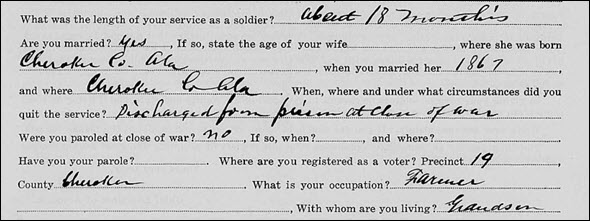 What was the length of your service as a soldier? About 18 Months
Are you married? Yes, If so, state the age of your wife, where she was born
Cherokee Co. Ala, when you married her 1867
and where Cherokee Co Ala. When, where and under what circumstances did you
quit the service? Discharged from prison at close of war
Were you paroled at close of war? no, If so, when?, and where?
Have your parole? Where are you registered as a voter? Precinct 19,
County Cherokee What is your occupation? Farmer
, With whom are you living? Grandson